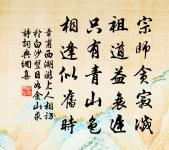 宗師舍寂滅
祖道益衰遲
只有青山色
相逢似舊時
章甫西湖游上人相訪
於白沙翌日如金山求
詩詞典網集